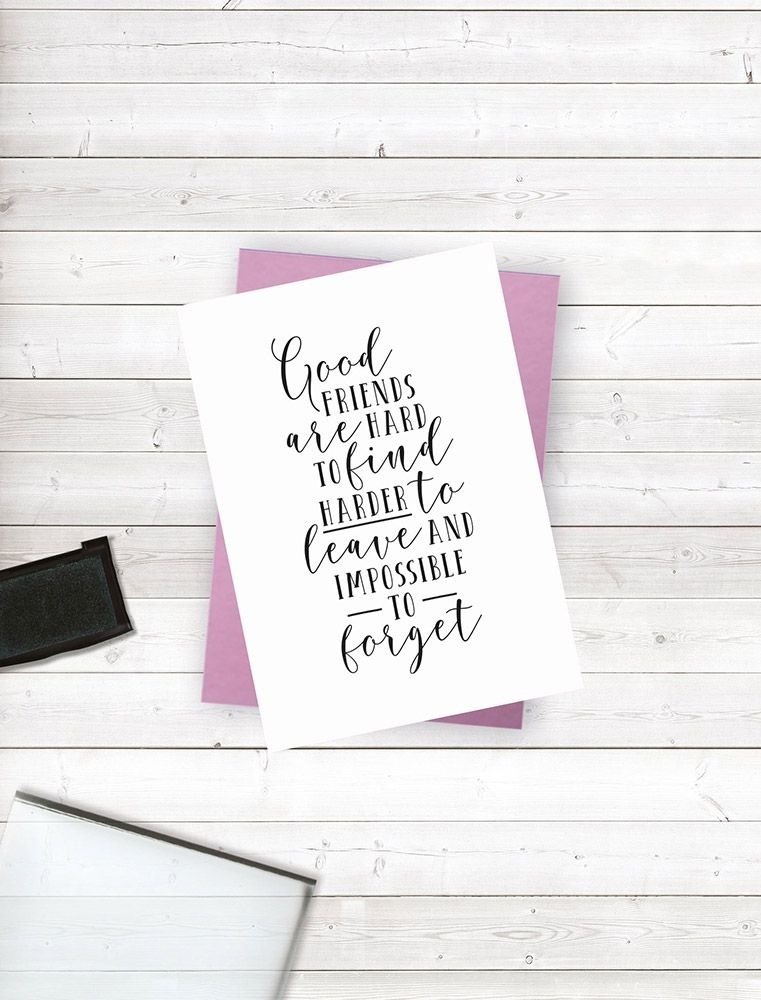 Good
FRIENDS
are HARD
TO find
HARDER to
leave AND
IMPOSSIBLE
— TO —
forget